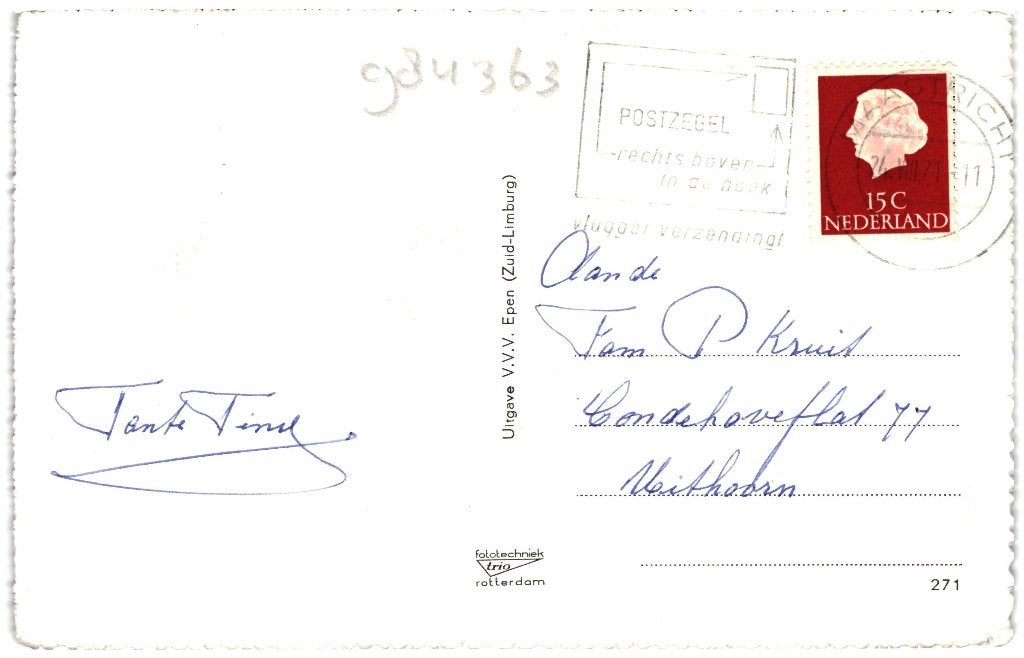 984363
POSTZEGEL
rechts boven
in de hoek
vlugger verzending!
MAASTRICHT
24.VIII.71 11
15 C
NEDERLAND
Aan de
Fam P Kruit
Condehoveflat 77
Uithoorn
Tante Tine
Uitgave V.V.V. Epen (Zuid-Limburg)
fototechniek
trio
rotterdam
271